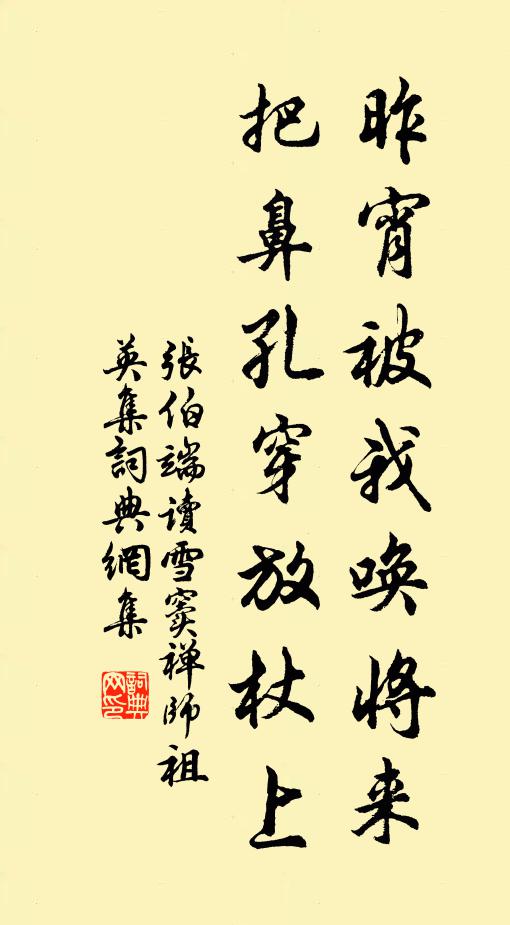 昨宵被我唤将来
把鼻孔穿放杖上
張伯端读雪窦禅师祖
英集詞典網集
詞典
网印